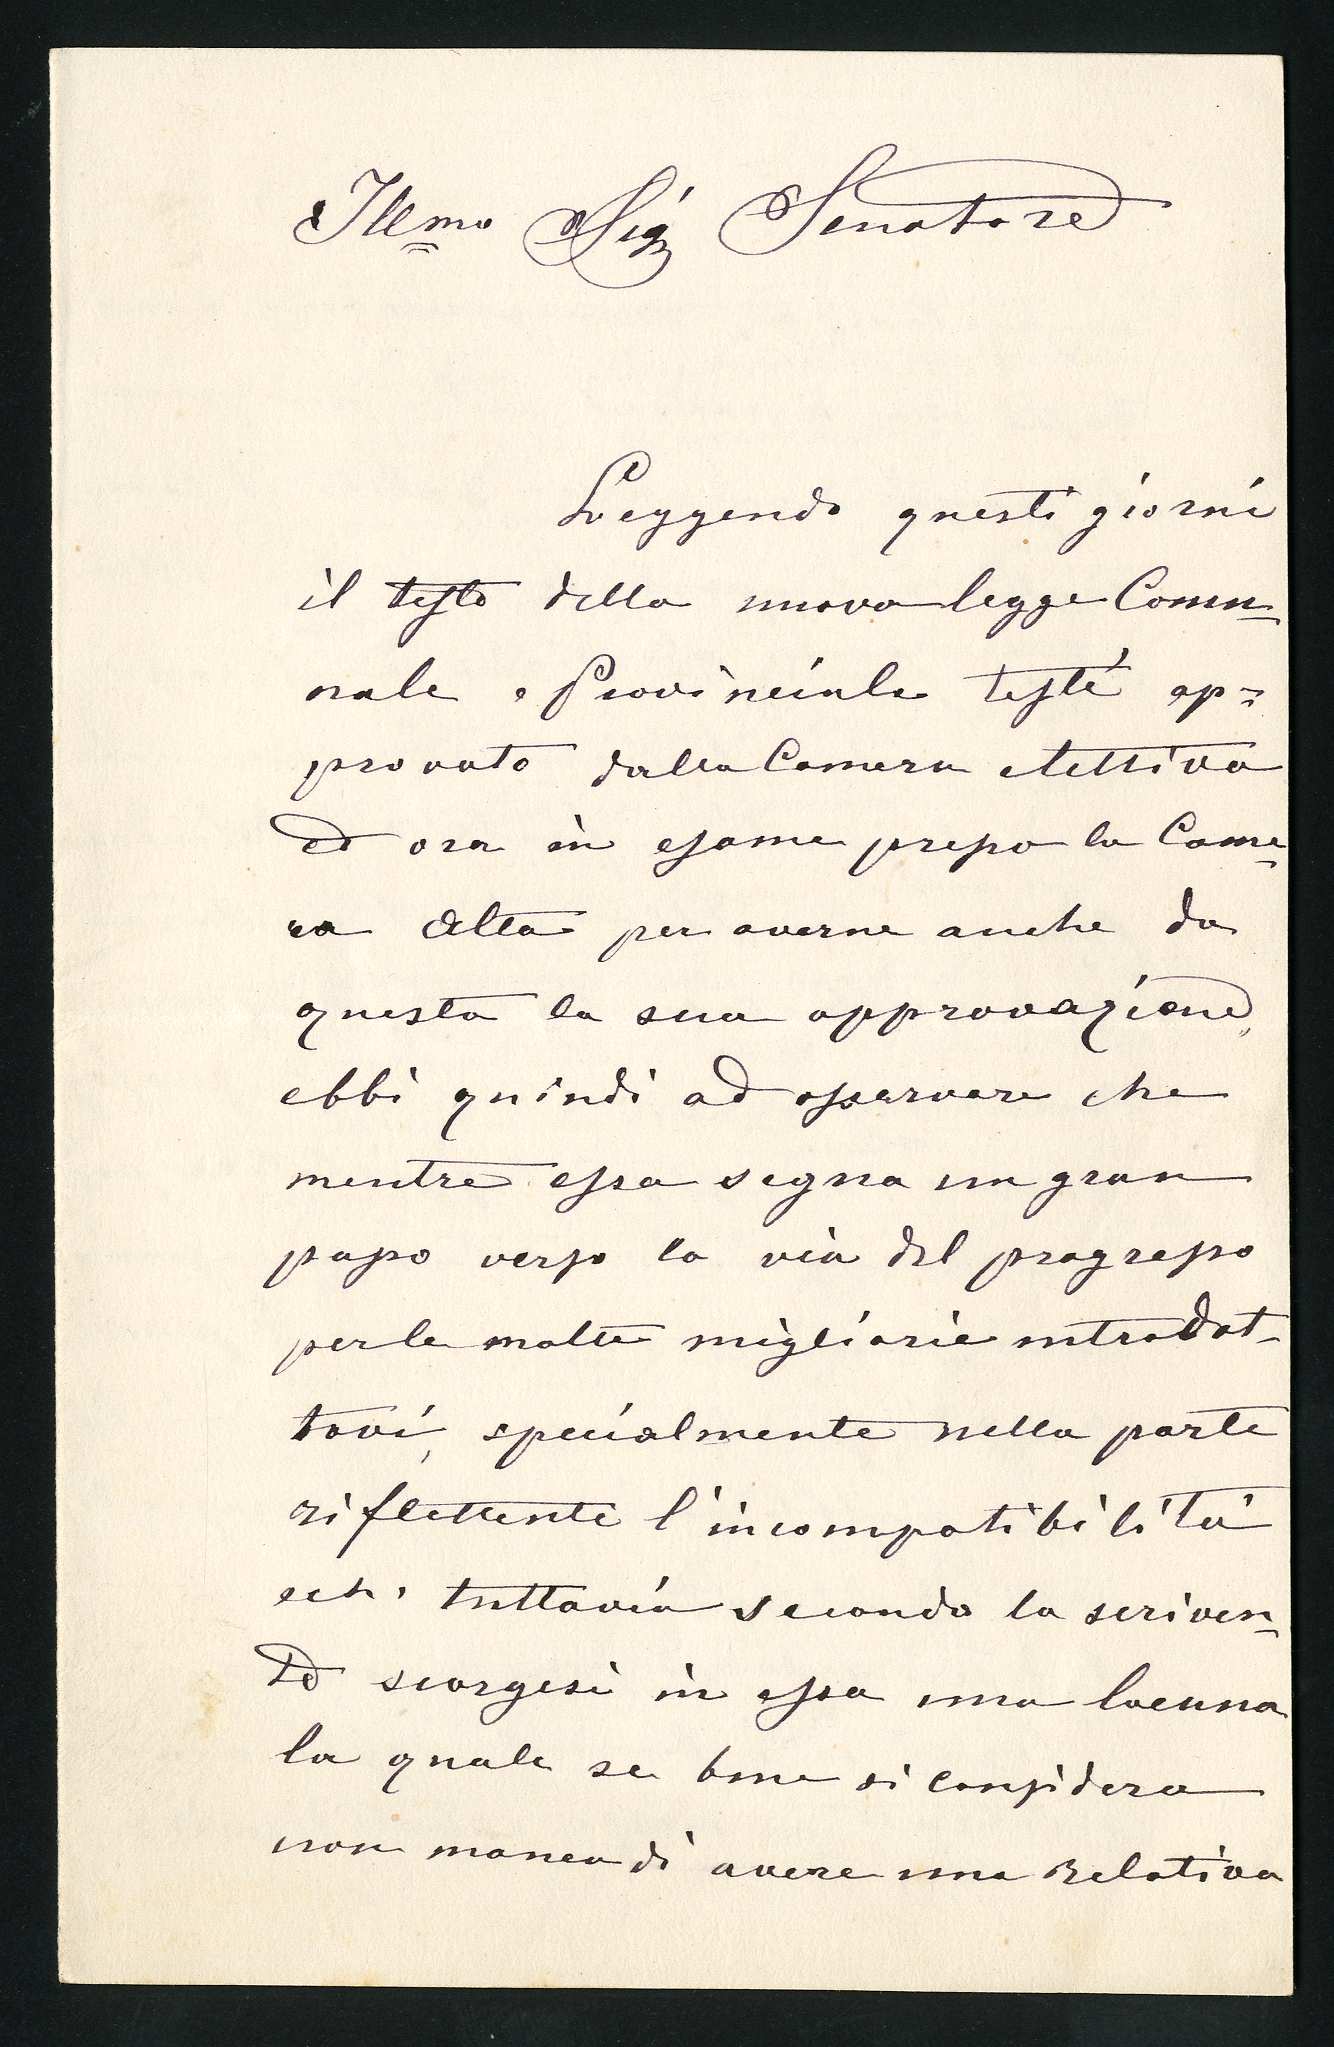 Illmo Sigr Senatore
Leggendo questi giorni
il testo della nuova legge Comu=
nale e Provinciale testé ap=
provato dalla Camera elettiva
ed ora in esame presso la Came=
ra Alta per averne anche da
questa la sua approvazione,
ebbi quindi ad osservare che
mentre essa segna un gran
passo verso la via del progresso
per le molte migliorie introdot-
tovi, specialmente nella parte
riflettente l'incompatibilità
ech. tuttavia secondo la scriven=
te scorgesi in essa una lacuna
la quale se bene si considera
non manca di avere una relativa